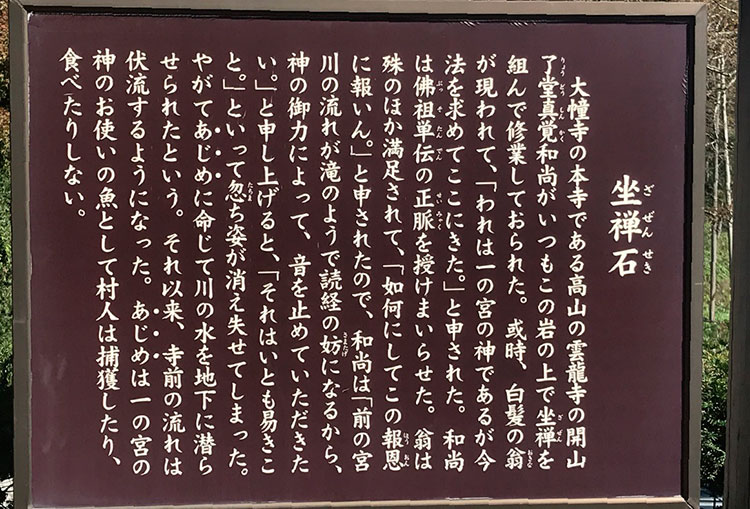 坐禅石
ざぜんせき
大幢寺の本寺である高山の雲龍寺の開山
了堂真覚和尚がいつもこの岩の上で坐禅を
りょうどうしんかく
ざぜん
組んで修業しておられた。或時、白髪の翁
おきな
が現われて、「われは一の宮の神であるが今
法を求めてここにきた。」と申された。和尚
は佛祖単伝の正脈を授けまいらせた。翁は
ぶっそたんでん
せいみゃく
殊のほか満足されて、「如何にしてこの報恩
ほうおん
に報いん。」と申されたので、和尚は「前の宮
川の流れが滝のようで読経の妨になるから、
さまたげ
神の御力によって、音を止めていただきた
い。」と申し上げると、「それはいとも易きこ
と。」といって忽ち姿が消え失せてしまった。
たちま
やがてあじめに命じて川の水を地下に潜ら
せられたという。それ以来、寺前の流れは
伏流するようになった。あじめは一の宮の
神のお使いの魚として村人は捕獲したり、
食べたりしない。